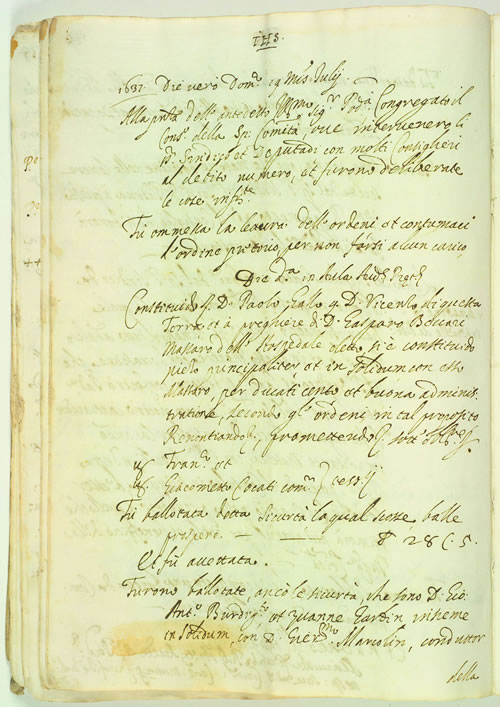 IHS.
1631. Die vero Domᵃ 19 Mēs Julij.
Alla pnta dell' antedetto Illmo Sigʳ Podᵃ Congregato il
Consº della Spˡᵉ Comità oue interuenero li
SS. Sindico et Deputadi con molti Consiglieri
al debito numero, et furono deliberate
le cose infrᵗᵉ
Fù ommessa la lettura dell' ordeni et contumaci
l'ordine pretorio, per non farsi alcun carico
Die dᵃ in Aula
Constituido q. D. Paolo Gallo q. D. Vicenzo di questa
Terra et à preghiere di D. Gasparo
Massaro dell' Hospedale etc. si è constituido
piezo principaliter et in solidum con esso
Massaro, per Ducati cento et buona adminis:
tratione, secondo gl' ordeni in tal proposito
Renontiando etc. promettendo etc. sotto
Franº et
Giacometto Cocati comⁱ } testij
Fù ballotata detta sicurtà la qual scosse balle
prospere. — — P 28 C. 5.
Et fù accettata.
Furono ballotate, ancò le sicurtà, che sono D. Gio:
Antº et Zuanne insieme
in solidum, con D. Marcolin, condutor
della